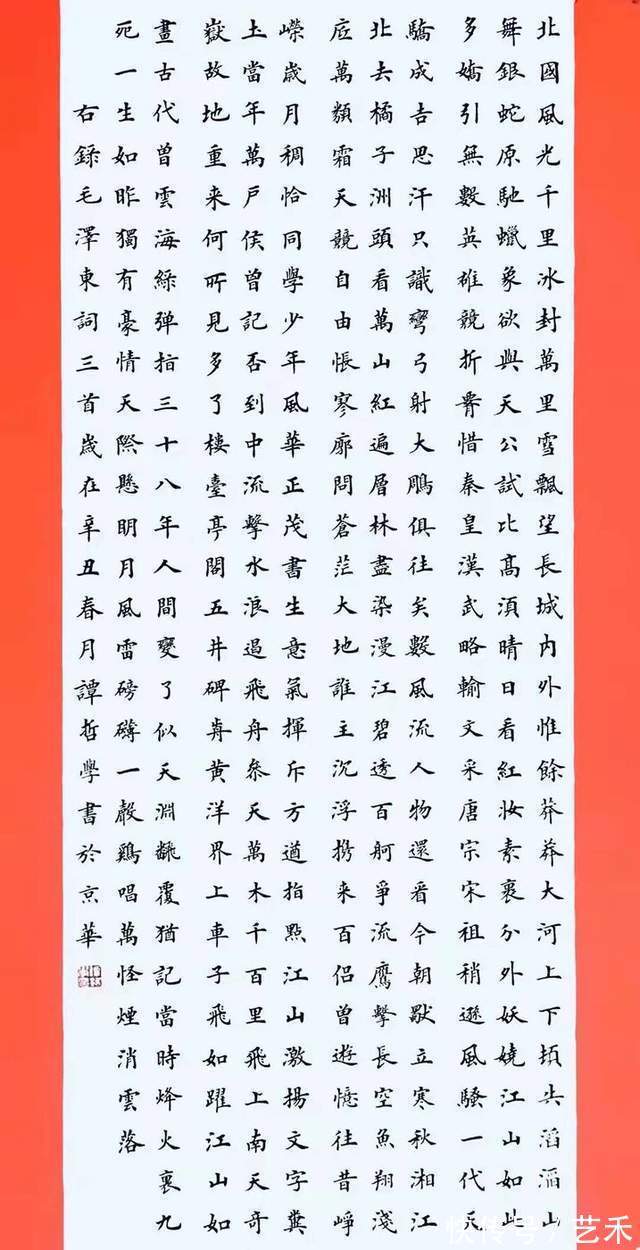 北國風光千里冰封萬里雪飄望長城内外惟餘莽莽大河上下頓失滔滔山
舞銀蛇原馳蠟象欲與天公試比高須晴日看紅妝素裹分外妖嬈江山如此
多嬌引無數英雄競折腰惜秦皇漢武略輸文采唐宗宋祖稍遜風騷一代天
驕成吉思汗只識彎弓射大鵰俱往矣數風流人物還看今朝獨立寒秋湘江
北去橘子洲頭看萬山紅遍層林盡染漫江碧透百舸爭流鷹擊長空魚翔淺
底萬類霜天競自由悵寥廓問蒼茫大地誰主沉浮携來百侶曾遊憶往昔崢
嶸歲月稠恰同學少年風華正茂書生意氣揮斥方遒指點江山激揚文字糞
土當年萬戶侯曾記否到中流擊水浪遏飛舟參天萬木千百里飛上南天奇
嶽故地重來何所見多了樓臺亭閣五井碑前黃洋界上車子飛如躍江山如
畫古代曾雲海綠彈指三十八年人間變了似天淵翻覆猶記當時烽火裏九
死一生如昨獨有豪情天際懸明月風雷磅礴一聲鷄唱萬怪煙消雲落
右錄毛澤東詞三首歲在辛丑春月譚哲學書於京華
快传号 / 艺禾